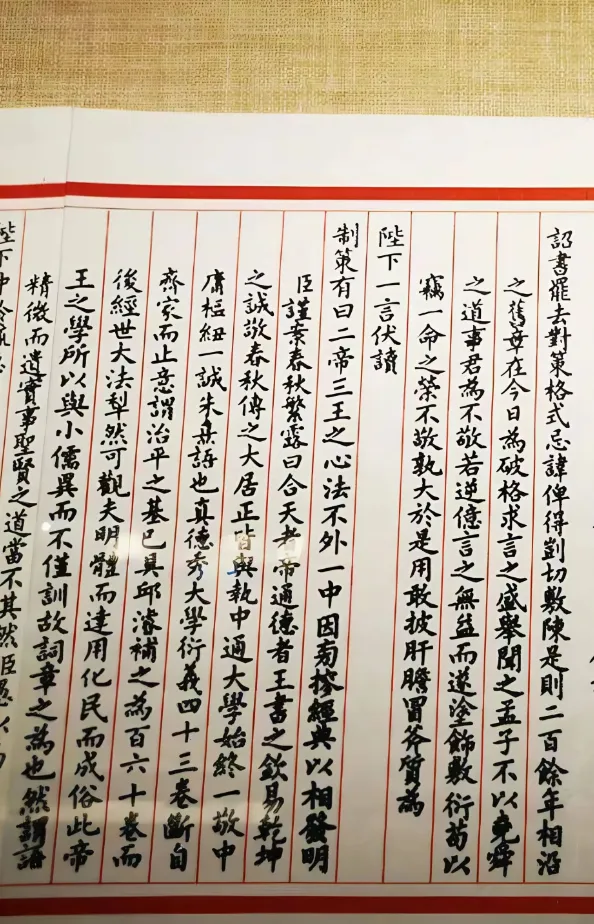 詔書罷去對策格式忌諱俾得剴切敷陳是則二百餘年相沿
之舊弊在今日為破格求言之盛舉聞之孟子不以堯舜
之道事君為不敬若逆億言之無益而遂塗飾敷衍苟以
竊一命之榮不敬孰大於是用敢披肝膽冒斧質為
陛下一言伏讀
制策有曰二帝三王之心法不外一中因旁捜經典以相發明
臣謹案春秋繁露曰合天者帝通德者王書之欽易乾坤
之誠敬春秋傳之大居正皆與執中通大學始終一敬中
庸樞紐一誠朱其語也真德秀大學衍義四十三卷斷自
齊家而止意謂治平之基已具邱濬補之為百六十卷而
後經世大法犁然可觀夫明體而達用化民而成俗此帝
王之學所以與小儒異而不僅訓故詞章之為也然謂語
精微而遺實事聖賢之道當不其然臣愚以為
陛下